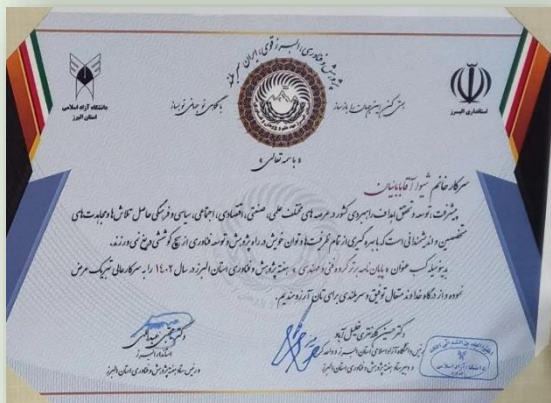 پژوهش و فناوری، البرز قوی، ایران سربلند
دانشگاه آزاد اسلامی
استان البرز
استانداری البرز
«باسمه تعالی»
سرکار خانم شیوا آقابابائیان
پیشرفت، توسعه و تحقق اهداف راهبردی کشور در عرصه های مختلف علمی، صنعتی، اقتصادی، اجتماعی، سیاسی و فرهنگی حاصل تلاش ها و مجاهدت های
متخصصین و اندیشمندانی است که با بهره گیری از تمام ظرفیت ها و توان خویش در راه پژوهش و توسعه فناوری از هیچ کوششی دریغ نمی ورزند.
بدینوسیله کسب عنوان «پایان نامه برتر گروه فنی و مهندسی» هفته پژوهش و فناوری استان البرز در سال ۱۴۰۲ را به سرکار عالی تبریک عرض
نموده و از درگاه خداوند متعال توفیق و سربلندی برای تان آرزومندیم.
دکتر حسین کلانتری خلیل آباد
رئیس دانشگاه آزاد اسلامی استان البرز و واحد کرج
و دبیر ستاد هفته پژوهش و فناوری استان البرز
دکتر مجتبی عبداللهی
استاندار البرز
و رئیس ستاد هفته پژوهش و فناوری استان البرز
دانشگاه آزاد اسلامی